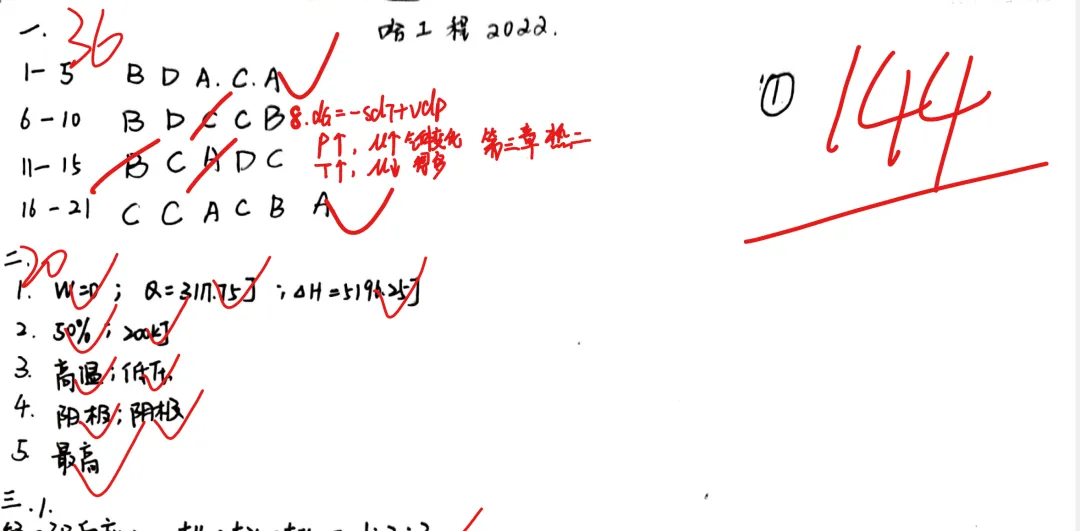 哈工程 2022.
一. 36
① 144
1-5 B D A. C. A
6-10 B D C C B 8. dG=-SdT+Vdp
P↑, μ↑ 气体变化 第三章 热二
11-15 B C A D C T↑, μ↓ 得多
16-21 C C A C B A
二. 20
1. W=0; Q=3117.75J; ΔH=5196.25J
2. 50%; 200kJ
3. 高温; 低压.
4. 阳极; 阴极
5. 最高
三.1.